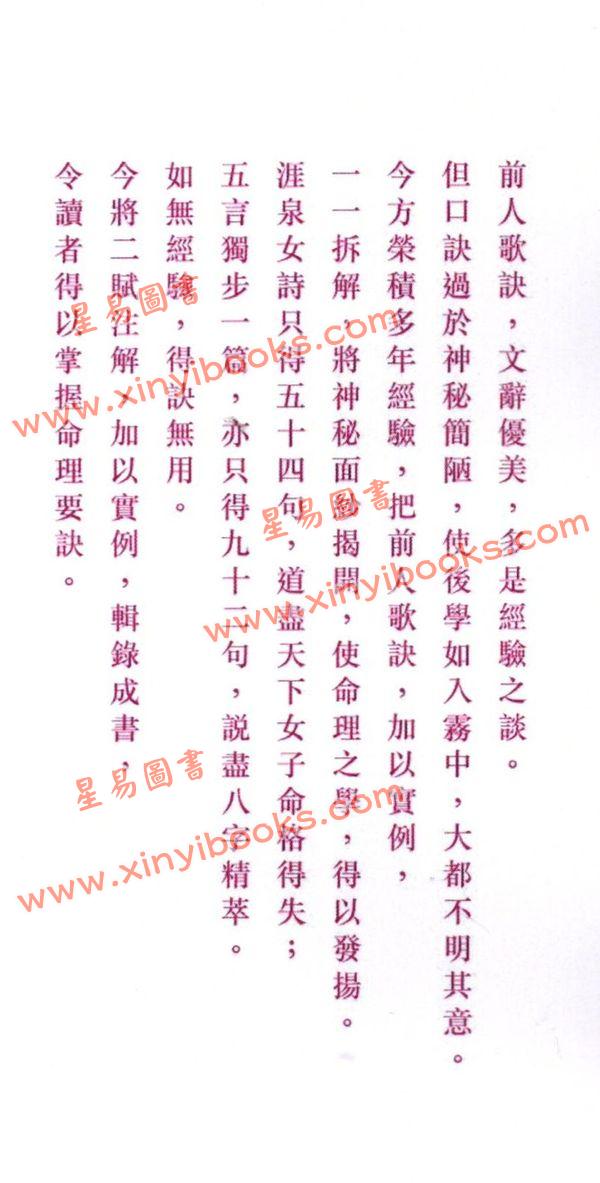 前人歌訣，文辭優美，多是經驗之談。
但口訣過於神秘簡陋，使後學如入霧中，大都不明其意。
今方榮積多年經驗，把前人歌訣，加以實例，
一一拆解，將神秘面紗揭開，使命理之學，得以發揚。
涯泉女詩只得五十四句，道盡天下女子命格得失；
五言獨步一篇，亦只得九十二句，説盡八字精萃。
如無經驗，得訣無用。
今將二賦注解，加以實例，輯錄成書，
令讀者得以掌握命理要訣。
星易圖書
www.xinyibooks.com
星易圖書
www.xinyibooks.com
星易圖書
www.xinyibooks.com